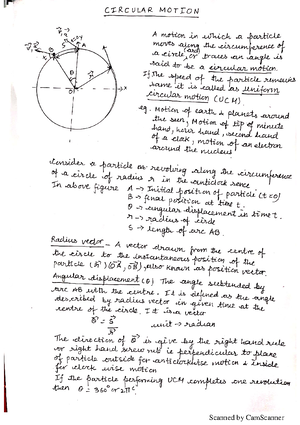 CIRCULAR MOTION
A motion in which a particle
moves along the circumference of
a circle (and) or traces an angle is
said to be a circular motion.
If the speed of the particle remains
same it is called as uniform
circular motion (UCM).
eg. Motion of earth & planets around
the sun, Motion of tip of minute
hand, hour hand, second hand
of a clock, motion of an electron
around the nucleus.
Consider a particle as revolving along the circumference
of a circle of radius r in the anticlock sense
In above figure A → Initial position of particle (t=0)
B → final position at time t.
θ → angular displacement in time t.
r → radius of circle
S → length of arc AB.
Radius vector - A vector drawn from the centre of
the circle to the instantaneous position of the
particle (OA, OB), also known as position vector.
Angular displacement (θ) The angle subtended by
arc AB with the centre. It is defined as the angle
described by radius vector in given time at the
centre of the circle. It is a vector
unit → radian
The direction of θ is give by the right hand rule
or right hand screw rule is perpendicular to plane
of particle outside for anticlockwise motion & inside
for clock wise motion
If the particle performing UCM completes one revolution
then θ = 360° or 2π
Scanned by CamScanner